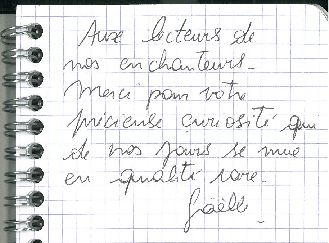 Aux lecteurs de
nos enchanteurs_
Merci pour votre
précieuse curiosité qui
de nos jours se mue
en qualité rare_
Gaëlle_